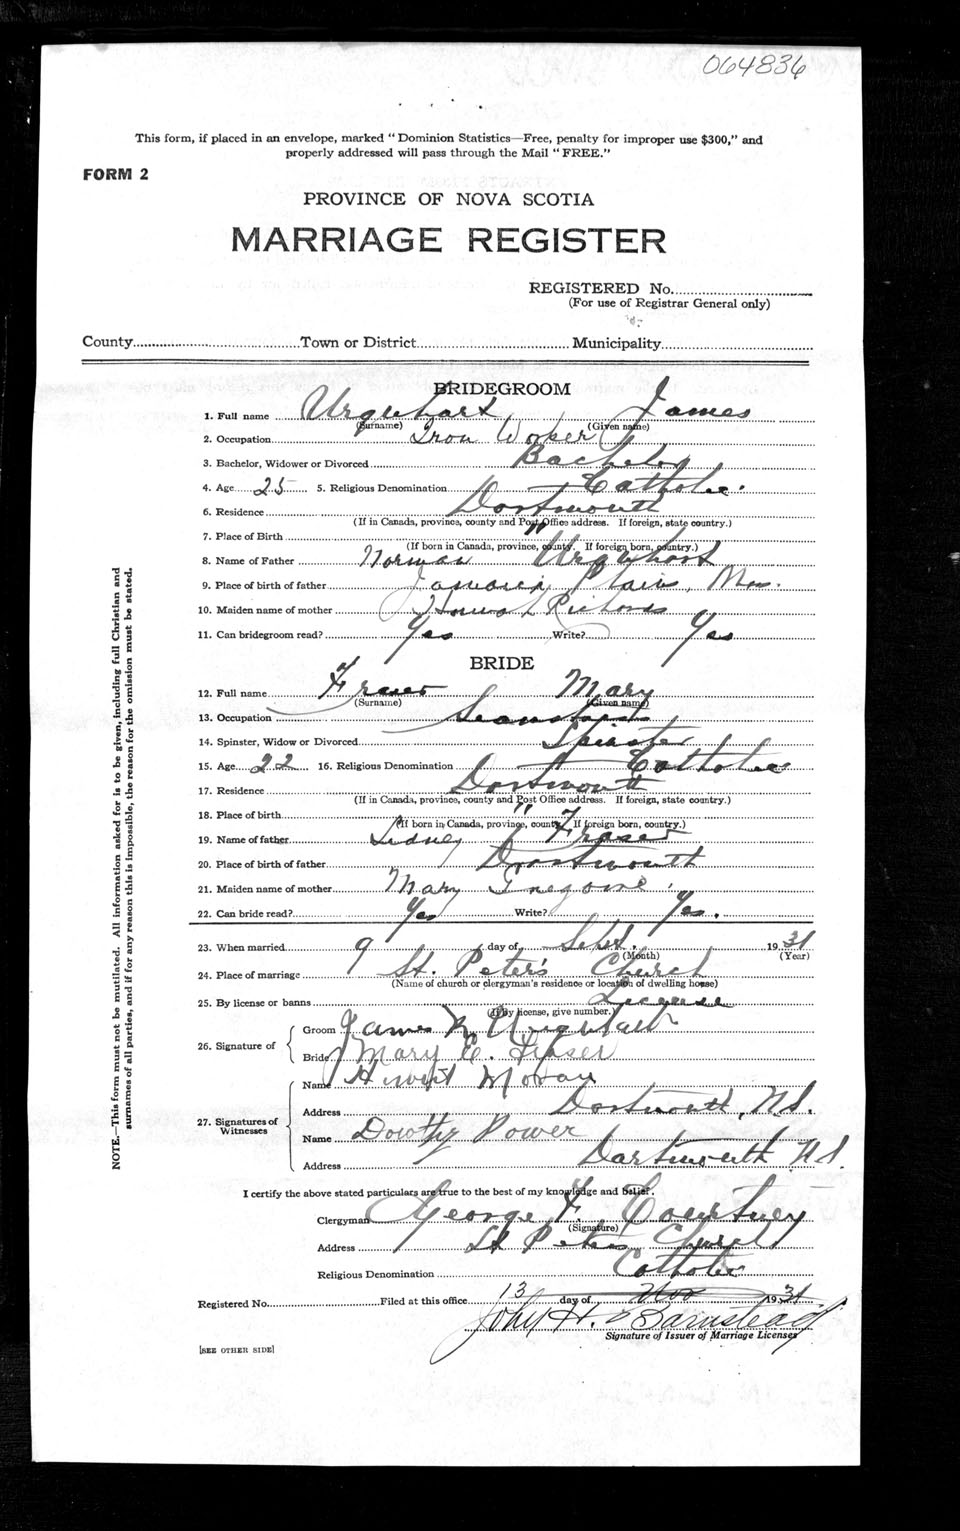 064836
This form, if placed in an envelope, marked "Dominion Statistics—Free, penalty for improper use $300," and
properly addressed will pass through the Mail "FREE."
FORM 2
PROVINCE OF NOVA SCOTIA
MARRIAGE REGISTER
REGISTERED No.
(For use of Registrar General only)
County Town or District Municipality
BRIDEGROOM
1. Full name Urquhart James
(Surname) (Given name)
2. Occupation Iron Worker
3. Bachelor, Widower or Divorced Bachelor
4. Age 25 5. Religious Denomination Catholic.
6. Residence Dartmouth
(If in Canada, province, county and Post Office address. If foreign, state country.)
7. Place of Birth "
(If born in Canada, province, county. If foreign born, country.)
8. Name of Father Norman Urquhart
9. Place of birth of father Jamaica Plains, Mas.
10. Maiden name of mother Richards
11. Can bridegroom read? Yes Write? Yes
BRIDE
12. Full name Fraser Mary
(Surname) (Given name)
13. Occupation
14. Spinster, Widow or Divorced Spinster
15. Age 22 16. Religious Denomination Catholic
17. Residence Dartmouth
(If in Canada, province, county and Post Office address. If foreign, state country.)
18. Place of birth "
(If born in Canada, province, county. If foreign born, country.)
19. Name of father Sidney Fraser
20. Place of birth of father Dartmouth
21. Maiden name of mother Mary
22. Can bride read? Yes Write? Yes.
23. When married 9 day of Sept. 1931
(Month) (Year)
24. Place of marriage St. Peter's Church
(Name of church or clergyman's residence or location of dwelling house)
25. By license or banns License
(If by license, give number.)
26. Signature of
Groom James N Urquhart
Bride Mary E. Fraser
27. Signatures of Witnesses
Name Moran
Address Dartmouth, N.S.
Name Dorothy Power
Address Dartmouth N.S.
I certify the above stated particulars are true to the best of my knowledge and belief.
Clergyman George F. Courtney
(Signature)
Address St Peters Church
Religious Denomination Catholic
Registered No. Filed at this office 13 day of Nov 1931
John H. Barnstead
Signature of Issuer of Marriage Licenses
[SEE OTHER SIDE]
NOTE.—This form must not be mutilated. All information asked for is to be given, including full Christian and
surnames of all parties, and if for any reason this is impossible, the reason for the omission must be stated.